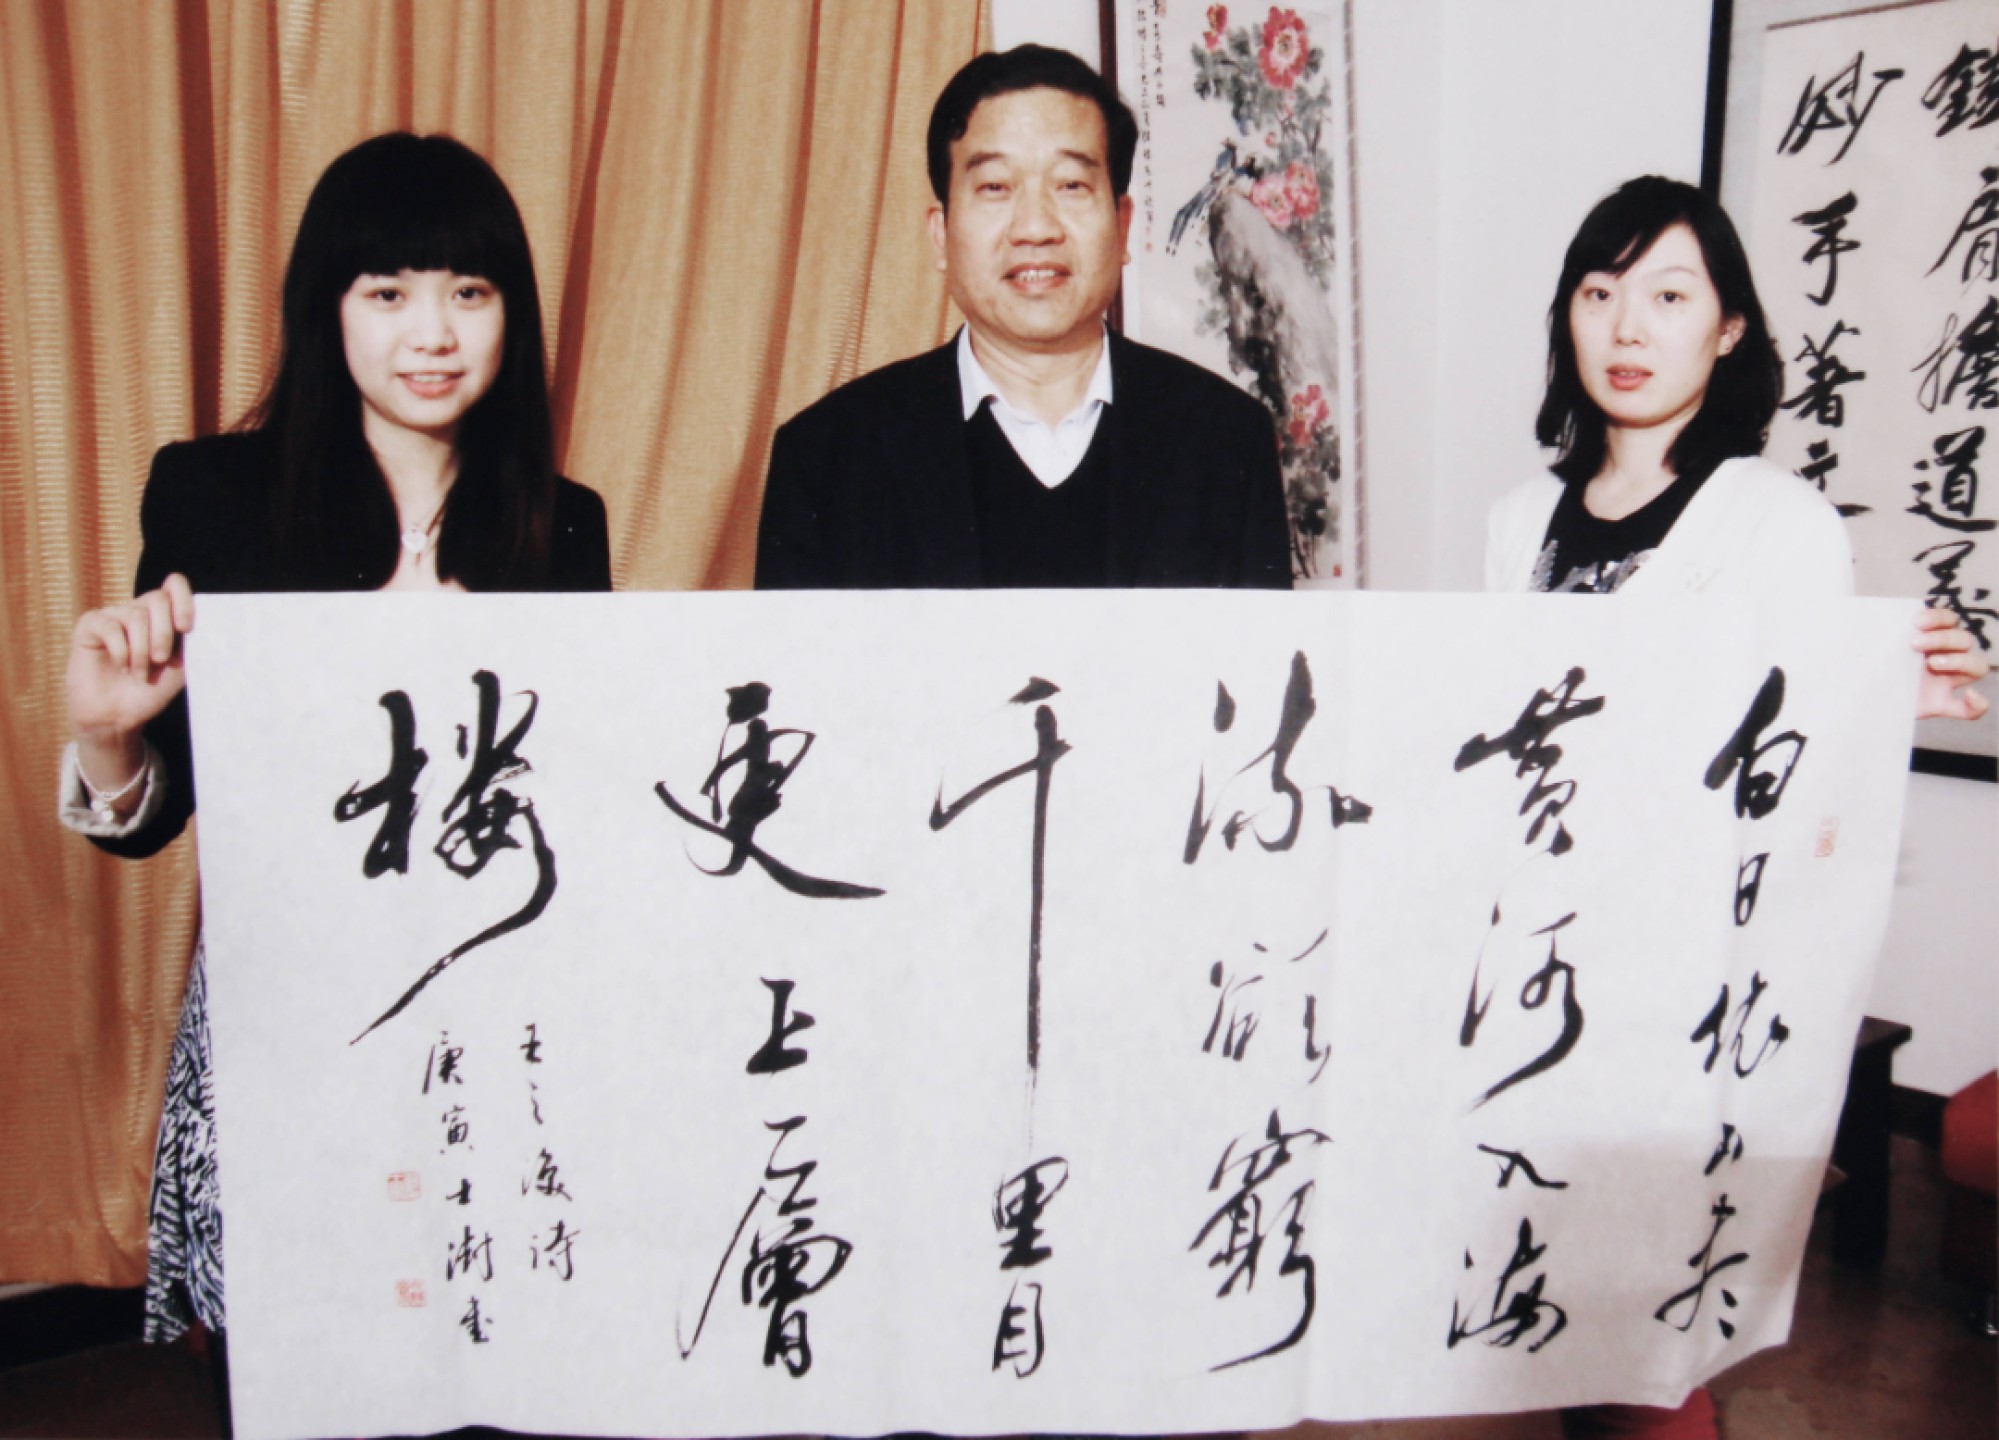 鐵肩擔道義
妙手著文
白日依山尽
黄河入海
流欲窮
千里目
更上一層
楼
王之涣诗
庚寅士澍书